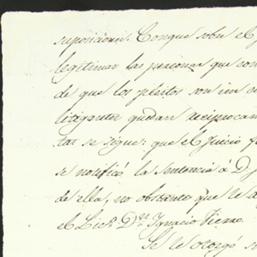 suposicion. Conque sobre el
legitimar las personas que
de que los pleitos son in
litigantes quedan reciproca
se sigue que el Juicio
se notificó la sentencia á D.
de ella, no obstante que le
el Licdo. Dn. Ignacio Fierro
Se le otorgó